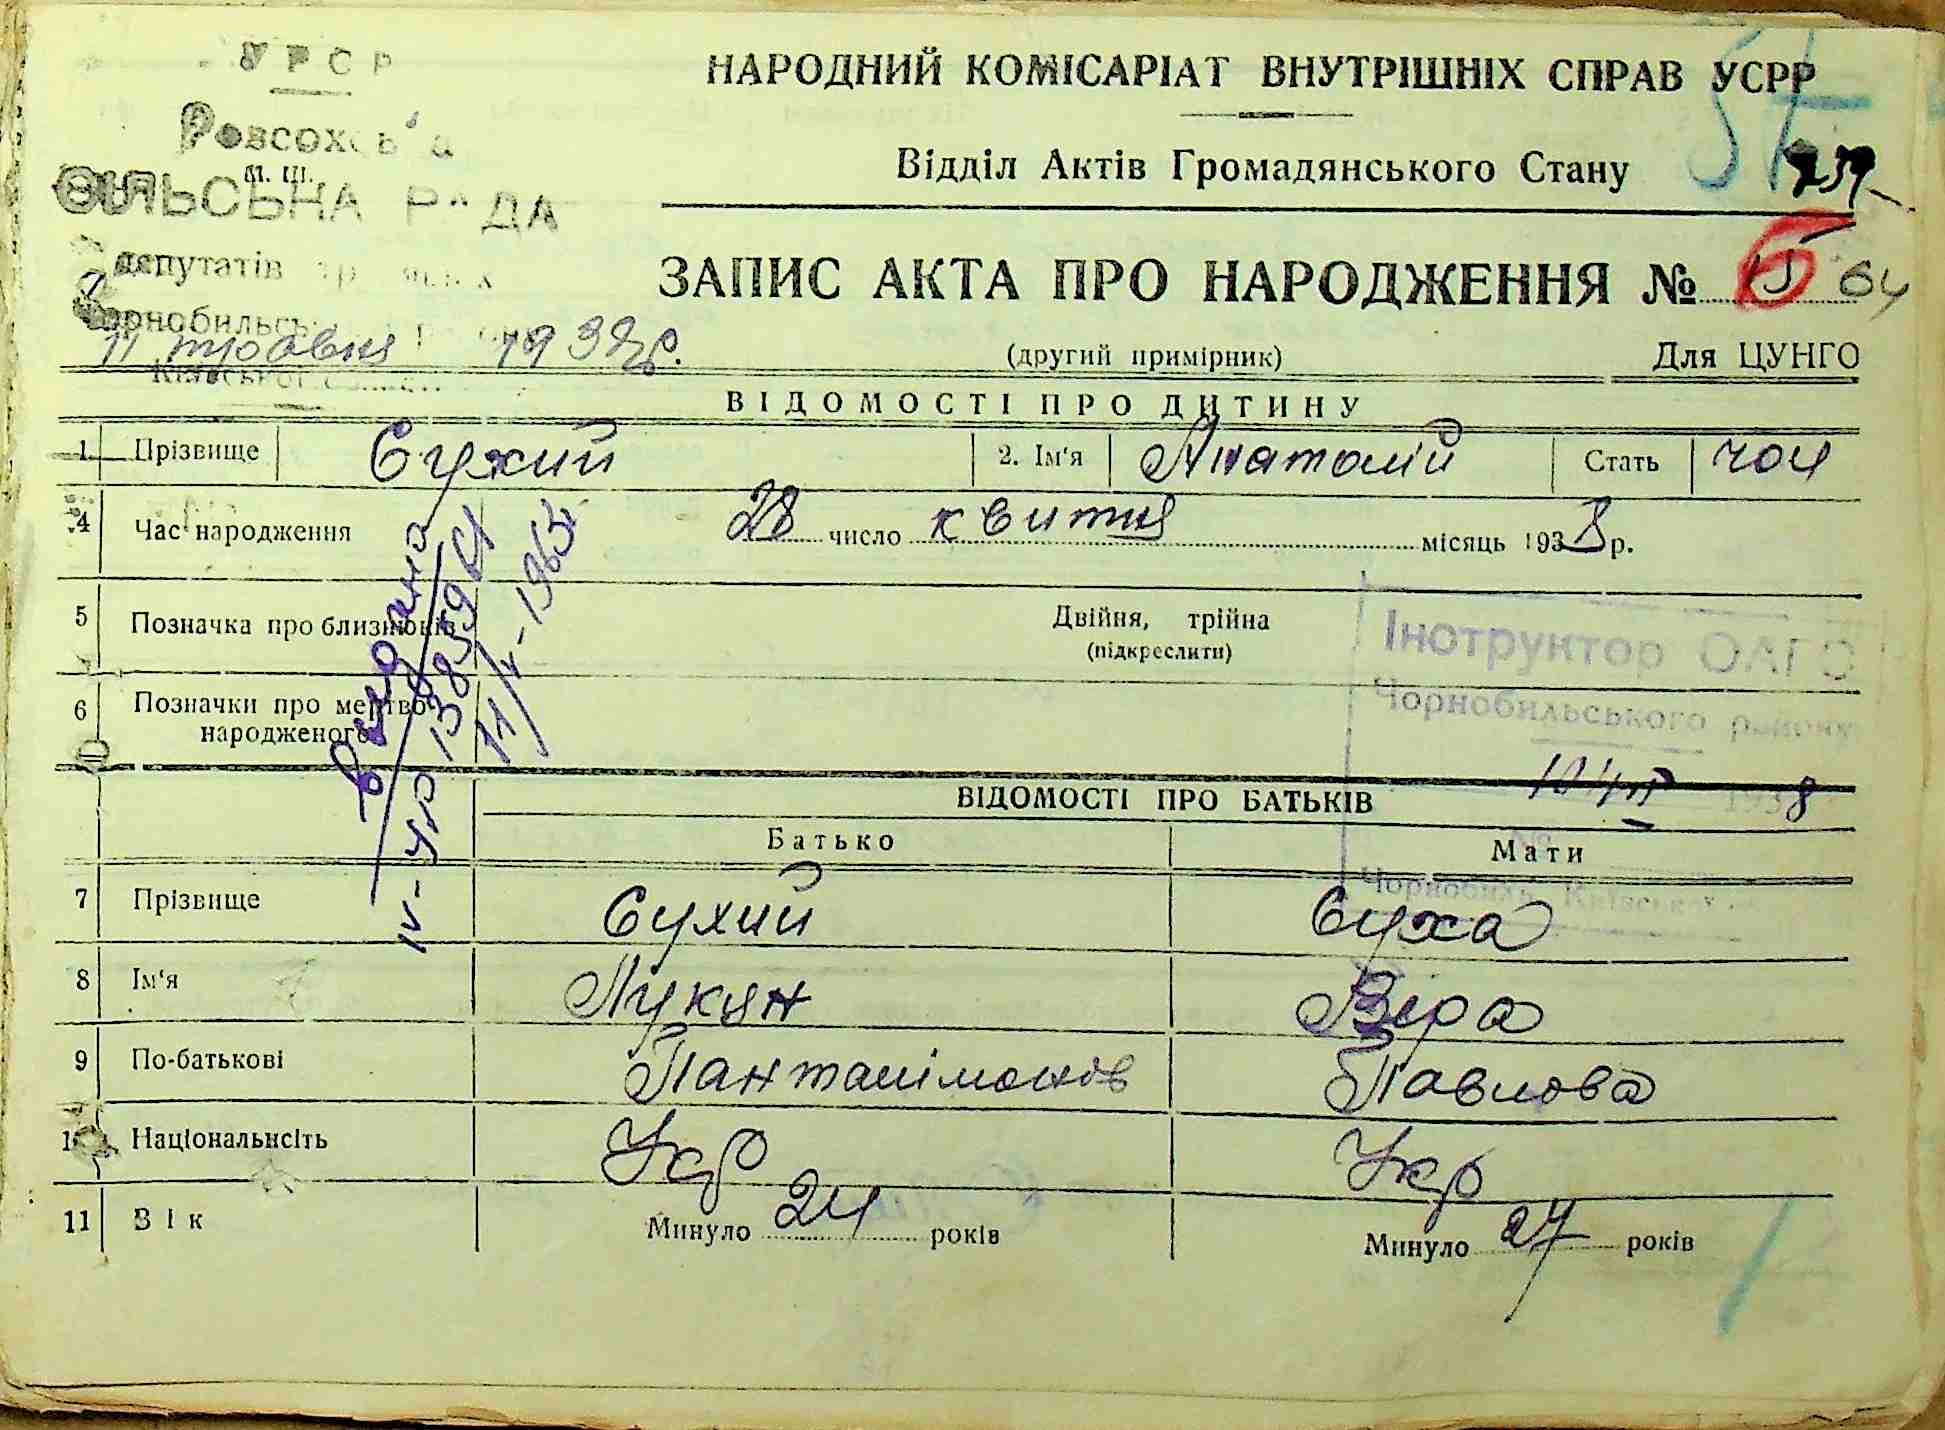 УРСР
НАРОДНИЙ КОМІСАРІАТ ВНУТРІШНІХ СПРАВ УСРР
Відділ Актів Громадянського Стану
М. Ш.
СІЛЬСЬКА РАДА
депутатів
ЗАПИС АКТА ПРО НАРОДЖЕННЯ № 15 64
11 травня 1938 р.
(другий примірник)
Для ЦУНГО
ВІДОМОСТІ ПРО ДИТИНУ
1 Прізвище Сухий 2. Ім'я Анатолій Стать чол
4 Час народження 28 число квітня місяць 1938 р.
5 Позначка про близнюків Двійня, трійна
(підкреслити)
Інструктор ОАГС
Чорнобильського району
6 Позначки про мертво-
народженого
видано
IV-УР 138559
11/V-1963
1938
ВІДОМОСТІ ПРО БАТЬКІВ
Батько Мати
7 Прізвище Сухий Суха
8 Ім'я Лукян Віра
9 По-батькові Панталімонов Павлова
10 Національність Укр Укр
11 Вік Минуло 24 років Минуло 27 років